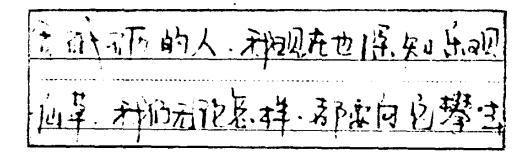 的人.我现在也深知乐观
仙草.我们无论怎样.都要向它攀去